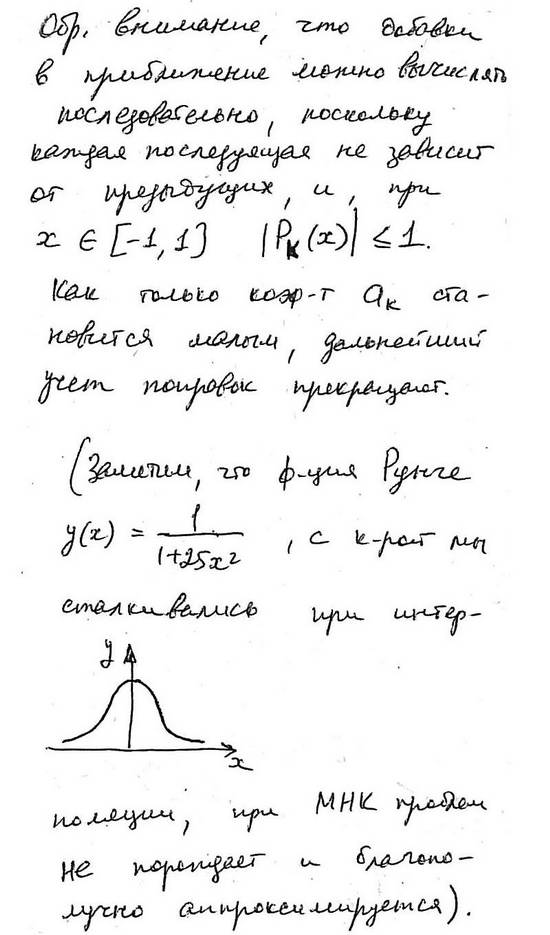 Обр. внимание, что добавки
в приближение можно вычислять
последовательно, поскольку
каждая последующая не зависит
от предыдущих, и, при
x ∈ [-1, 1] |P_k(x)| ≤ 1.
Как только коэф-т a_k ста-
новится малым, дальнейший
учет поправок прекращают.
(Заметим, что ф-ция Рунге
y(x) = 1/(1+25x²), с к-рой мы
сталкивались при интер-
y
x
поляции, при МНК проблем
не порождает и благопо-
лучно аппроксимируется).